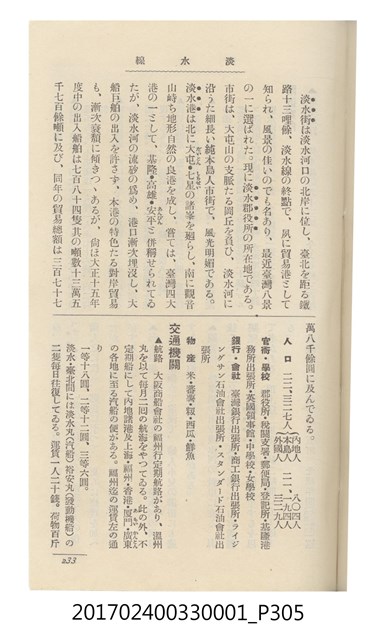 淡水線
淡水街は淡水河口の北岸に位し、臺北を距る鐵
路十三哩餘、淡水線の終點で、夙に貿易港として
知られ、風景の佳いのでも名あり、最近臺灣八景
の一に選ばれた。現に淡水郡役所の所在地である。
市街は、大屯山の支脈たる岡丘を負ひ、淡水河に
沿うた細長い純本島人市街で、風光明媚である。
淡水港は北に大屯・七星の諸峯を廻らし、南に觀音
山峙ち地形自然の良港を成し、嘗ては、臺灣四大
港の一として、基隆・高雄・安平と併稱せられてゐ
たが、淡水河の流砂の爲め、港口漸次埋沒し、大
船巨舶の出入を許さず、本港の特色たる對岸貿易
も、漸次衰頽に傾きつゝあるが、尙ほ大正十五年
度中の出入船舶は七百八十四隻其の噸數十三萬五
千七百餘噸に及び、同年の貿易總額は三百七十七
萬八千餘圓に及んでゐる。
人口 二二、三二七人
內地人 八〇四
本島人 二一、九四
外國人 一二九
官衙・學校 郡役所・稅關支署・郵便局・登記所・基隆港
務所出張所・英國領事館・中學校・女學校
銀行・會社 臺灣銀行出張所・商工銀行出張所・ライジ
ングサン石油會社出張所・スタンダード石油會社出
張所
物產 米・蕃薯・蝦・西瓜・鮮魚
交通機關
▲航路 大阪商船會社の福州行定期航路があり、溫州
丸を以て每月二回の航海をやつてゐる。此の外、不
定期船にして內地諸港及上海・福州・香港・厦門・廣東
の各地に至る汽船の便がある。福州迄の運賃左の通
り
一等十八圓、二等十二圓、三等六圓。
淡水・臺北間には淡水丸(汽船)裕安丸(發動機船)の
二隻每日往復してゐる。運賃一人二十錢。荷物百斤
233
201702400330001_P305